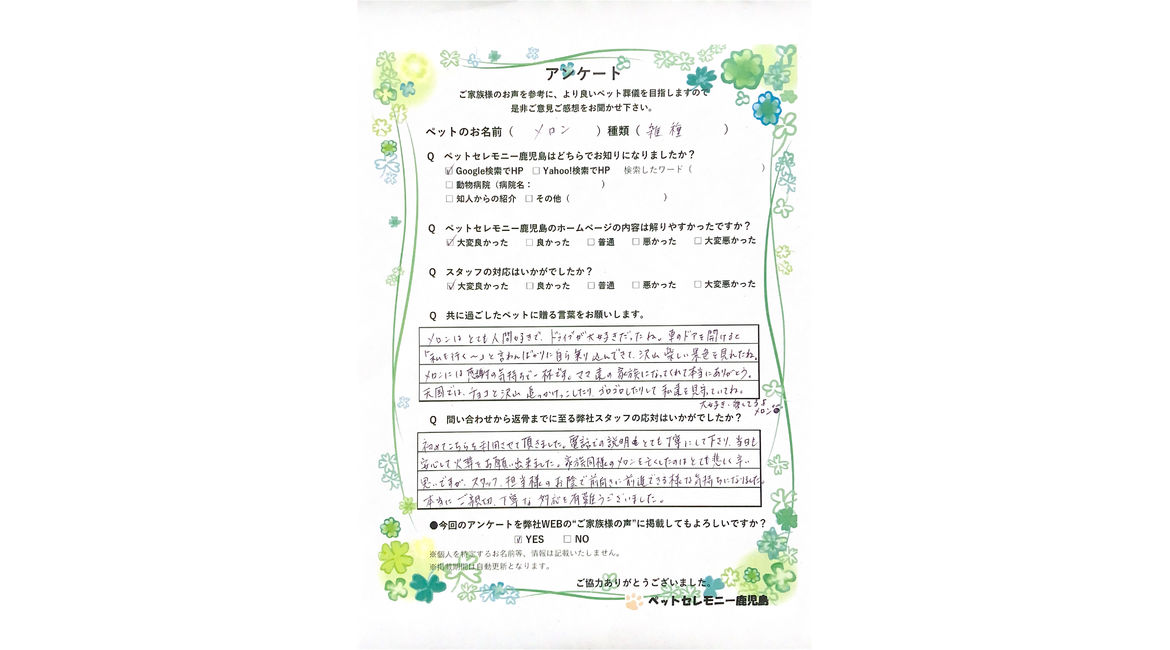 アンケート
ご家族様のお声を参考に、より良いペット葬儀を目指しますので
是非ご意見ご感想をお聞かせ下さい。
ペットのお名前（ メロン ）種類（ 雑種 ）
Q ペットセレモニー鹿児島はどちらでお知りになりましたか？
☑ Google検索でHP □ Yahoo!検索でHP 検索したワード（ ）
□ 動物病院（病院名： ）
□ 知人からの紹介 □ その他（ ）
Q ペットセレモニー鹿児島のホームページの内容は解りやすかったですか？
☑ 大変良かった □ 良かった □ 普通 □ 悪かった □ 大変悪かった
Q スタッフの対応はいかがでしたか？
☑ 大変良かった □ 良かった □ 普通 □ 悪かった □ 大変悪かった
Q 共に過ごしたペットに贈る言葉をお願いします。
メロンはとても人間好きで、ドライブが大好きだったね。車のドアを開けると
「私も行く〜」と言わんばかりに自ら乗り込んできて、沢山楽しい景色を見れたね。
メロンには感謝の気持ちで一杯です。ママ達の家族になってくれて本当にありがとう。
天国では、チョコと沢山追っかけっこしたり、ゴロゴロしたりして私達を見守っていてね。
大好き、愛してるよ
メロン
Q 問い合わせから返骨までに至る弊社スタッフの応対はいかがでしたか？
初めてこちらを利用させて頂きました。電話での説明もとても丁寧にして下さり、当日も
安心して火葬をお願い出来ました。家族同様のメロンを亡くしたのはとても悲しく辛い
思いですが、スタッフ、担当様のお陰で前向きに前進できる様な気持ちになりました。
本当にご親切、丁寧な対応を有難うございました。
●今回のアンケートを弊社WEBの“ご家族様の声”に掲載してもよろしいですか？
☑ YES □ NO
※個人を特定するお名前等、情報は記載いたしません。
※掲載期間は自動更新となります。
ご協力ありがとうございました。
ペットセレモニー鹿児島